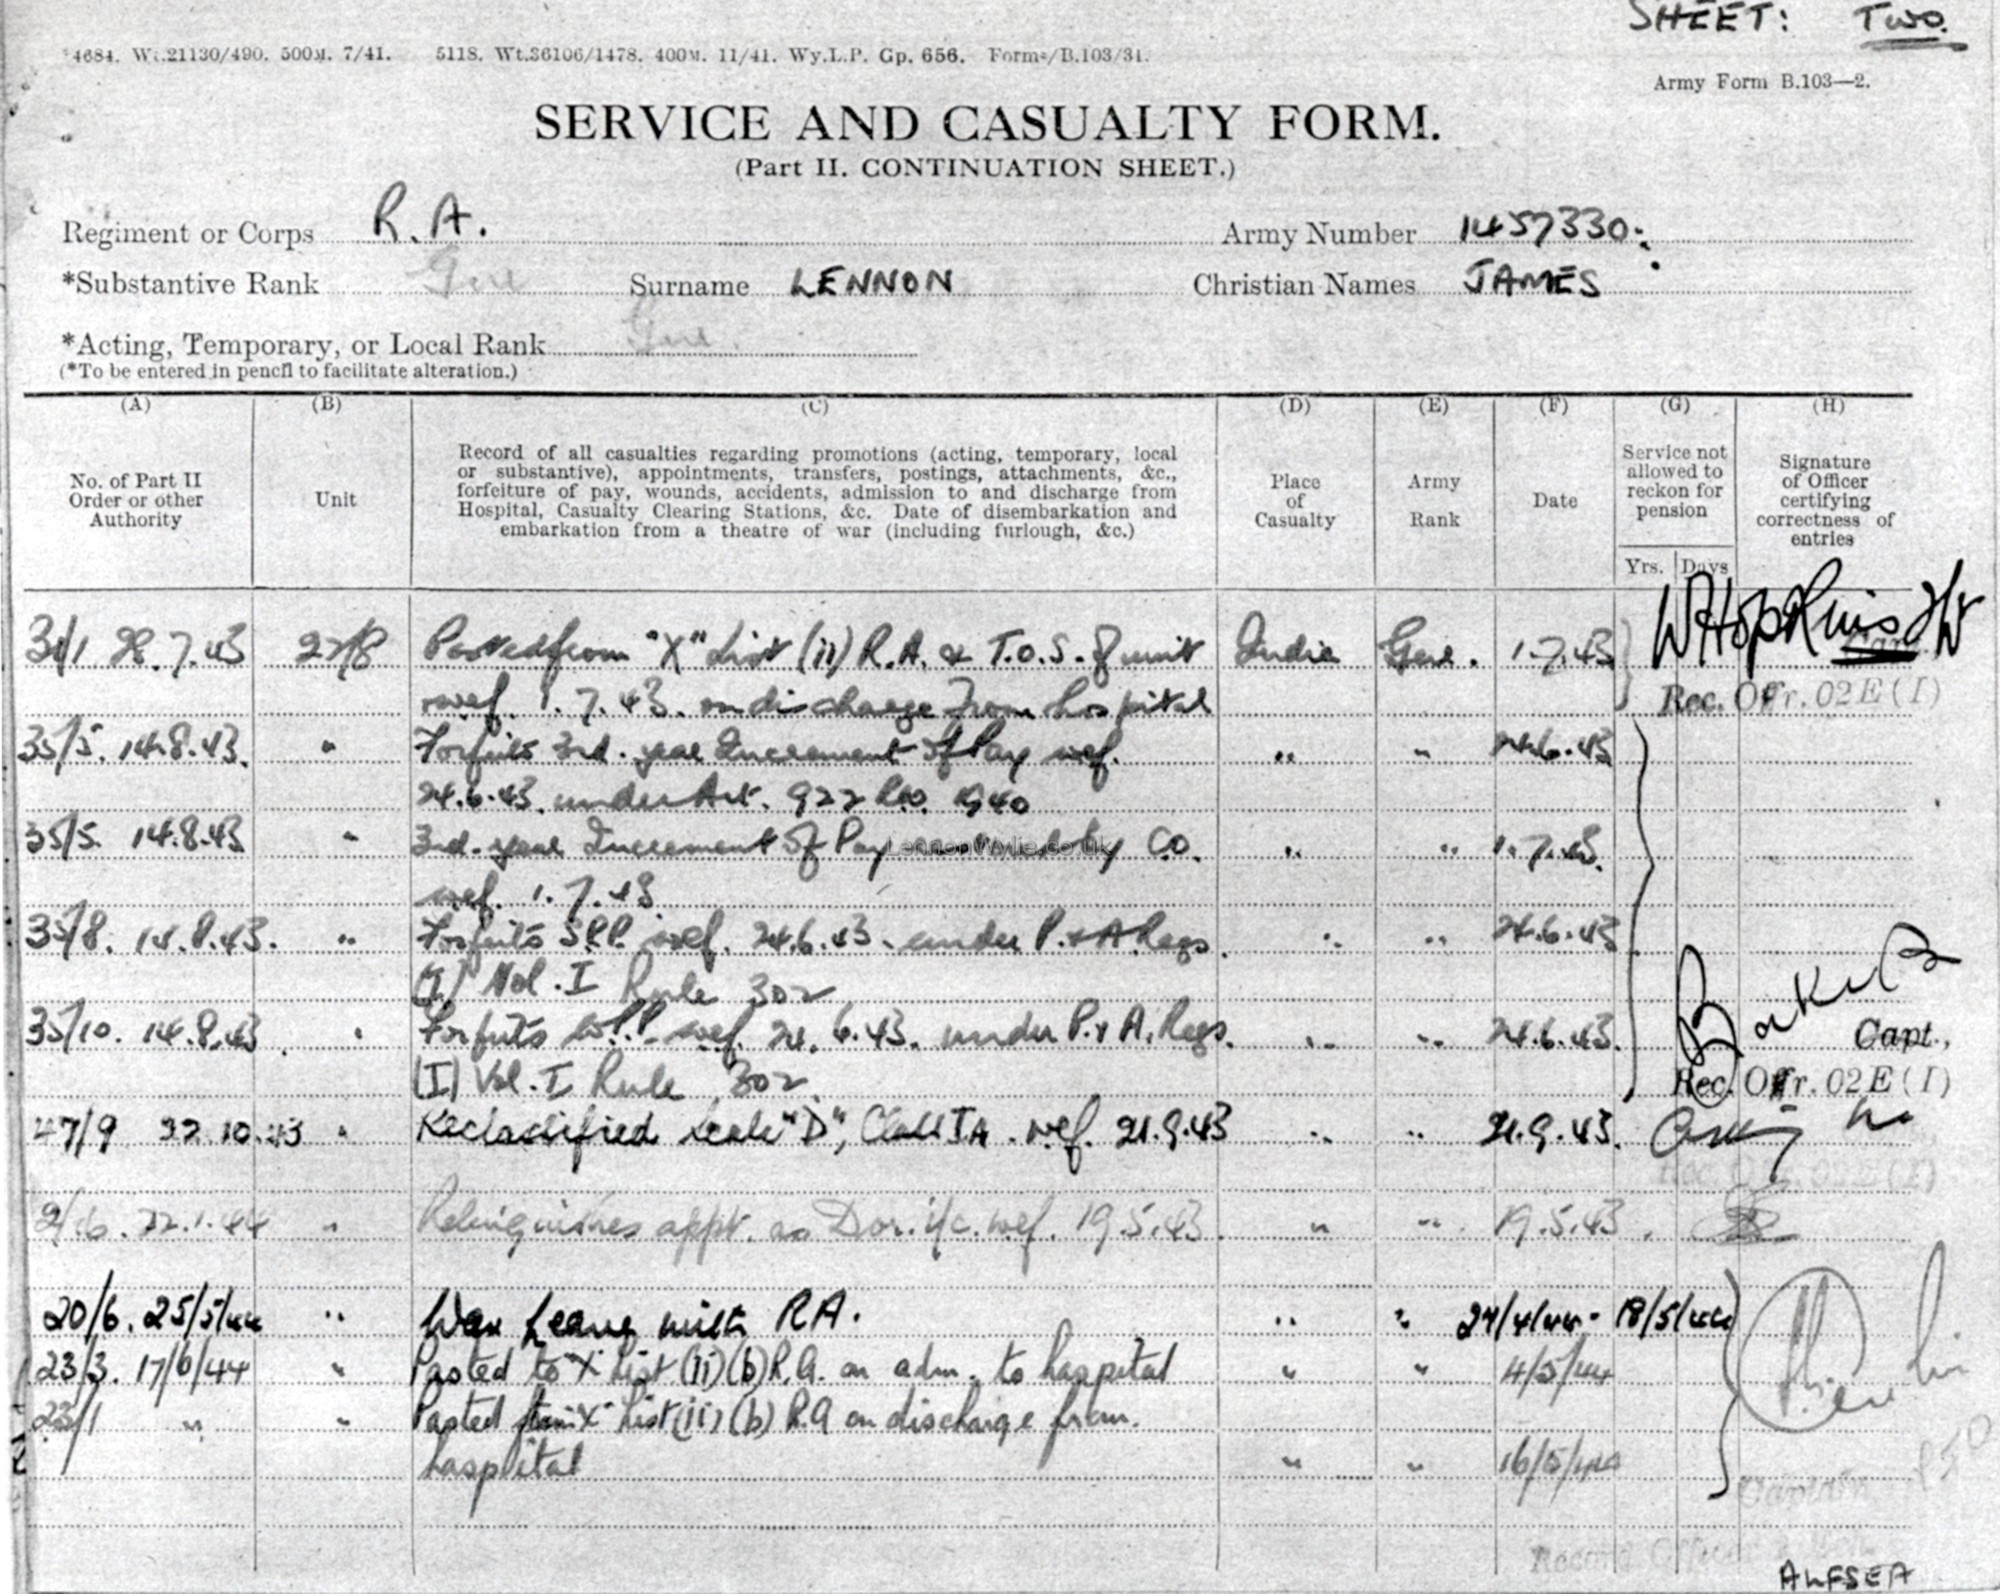 SHEET: Two.
4684. Wt.21130/490. 500M. 7/41. 5118. Wt.36106/1478. 400M. 11/41. Wy.L.P. Gp. 656. Forms/B.103/31.
Army Form B.103—2.
SERVICE AND CASUALTY FORM.
(Part II. CONTINUATION SHEET.)
Regiment or Corps R.A. Army Number 1457330.
*Substantive Rank Gnr Surname LENNON Christian Names JAMES
*Acting, Temporary, or Local Rank Gnr.
(*To be entered in pencil to facilitate alteration.)
(A) (B) (C) (D) (E) (F) (G) (H)
No. of Part II Order or other Authority
Unit
Record of all casualties regarding promotions (acting, temporary, local
or substantive), appointments, transfers, postings, attachments, &c.,
forfeiture of pay, wounds, accidents, admission to and discharge from
Hospital, Casualty Clearing Stations, &c. Date of disembarkation and
embarkation from a theatre of war (including furlough, &c.)
Place of Casualty
Army Rank
Date
Service not allowed to reckon for pension
Yrs. Days
Signature of Officer certifying correctness of entries
31/1 28.7.43 27/8 Posted from "X" List (ii) R.A. & T.O.S. of unit India Gnr. 1.7.43 WHopkins
wef. 1.7.43. on discharge from hospital Rec. Offr. 02E (I)
35/5. 14.8.43. " Forfeits 3rd. year Increment of Pay wef. " " 24.6.43
24.6.43. under Art. 922 1940
35/5. 14.8.43 " 3rd. year Increment of Pay by CO. " " 1.7.43.
LennonWylie.co.uk
wef. 1.7.43
35/8. 14.8.43. " Forfeits S.P.P. wef. 24.6.43. under P. & A Regs. " " 24.6.43
(I) Vol. I Rule 302
35/10. 14.8.43. " Forfeits W.P.P. wef. 24.6.43. under P. & A. Regs. " " 24.6.43. Baker Capt.,
(I) Vol. I Rule 302. Rec. Offr. 02E (I)
47/9 22.10.43 " Reclassified Scale "D", Class IA. wef. 21.9.43 " " 21.9.43.
Rec. Offr. 02E (I)
2/6. 22.1.44 " Relinquishes appt. as Dvr. i/c. wef. 19.5.43. " " 19.5.43.
20/6. 25/5/44 " War Leave with RA. " " 24/4/44 - 18/5/44
23/3. 17/6/44 " Posted to "X" List (ii) (b) R.A. on adm. to hospital " " 4/5/44
23/1 " " Posted from "X" List (ii) (b) R.A on discharge from.
hospital " " 16/5/44
Captain
Record Officer
ALFSEA